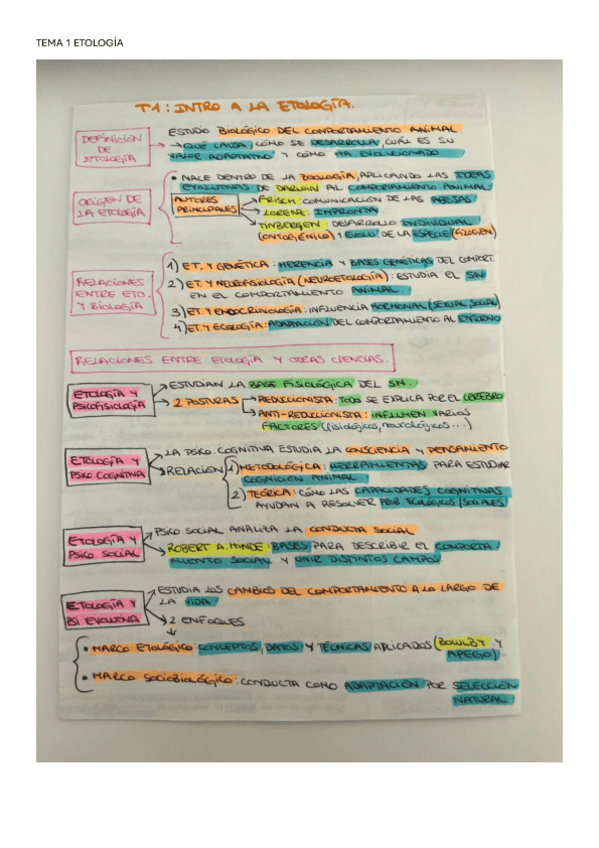 TEMA 1 ETOLOGÍA
T1: INTRO A LA ETOLOGÍA.
DEFINICIÓN DE ETOLOGÍA
ESTUDIO BIOLÓGICO DEL COMPORTAMIENTO ANIMAL
→ QUÉ CAUSA, CÓMO SE DESARROLLA, CUÁL ES SU
VALOR ADAPTATIVO Y CÓMO HA EVOLUCIONADO
ORIGEN DE LA ETOLOGÍA
• NACE DENTRO DE LA ZOOLOGÍA, APLICANDO LAS IDEAS
EVOLUTIVAS DE DARWIN AL COMPORTAMIENTO ANIMAL.
AUTORES PRINCIPALES
FRISCH: COMUNICACIÓN DE LAS ABEJAS
LORENZ: IMPRONTA
TINBERGEN: DESARROLLO INDIVIDUAL
(ONTOGÉNICO) Y EVOLU. DE LA ESPECIE (FILOGEN)
RELACIONES ENTRE ETO. Y BIOLOGÍA
1) ET. Y GENÉTICA: HERENCIA Y BASES GENÉTICAS DEL COMPORT.
2) ET. Y NEUROFISIOLOGÍA (NEUROETOLOGÍA): ESTUDIA EL SN
EN EL COMPORTAMIENTO ANIMAL
3) ET. Y ENDOCRINOLOGÍA: INFLUENCIA HORMONAL (SEXUAL, SOCIAL)
4) ET. Y ECOLOGÍA: ADAPTACIÓN DEL COMPORTAMIENTO AL ENTORNO
RELACIONES ENTRE ETOLOGÍA Y OTRAS CIENCIAS.
ETOLOGÍA Y PSICOFISIOLOGÍA
→ ESTUDIAN LA BASE FISIOLÓGICA DEL SN.
→ 2 POSTURAS
→ REDUCCIONISTA: TODO SE EXPLICA POR EL CEREBRO
→ ANTI-REDUCCIONISTA: INFLUYEN VARIOS
FACTORES (fisiológicos, neurológicos...)
ETOLOGÍA Y PSICO COGNITIVA
→ LA PSICO. COGNITIVA ESTUDIA LA CONSCIENCIA Y PENSAMIENTO
→ RELACIÓN
1) METODOLÓGICA: HERRAMIENTAS PARA ESTUDIAR
COGNICIÓN ANIMAL.
2) TEÓRICA: CÓMO LAS CAPACIDADES COGNITIVAS
AYUDAN A RESOLVER PROB. ECOLÓGICOS/SOCIALES
ETOLOGÍA Y PSICO SOCIAL
→ PSICO SOCIAL ANALIZA LA CONDUCTA SOCIAL
→ ROBERT A. HINDE: BASES PARA DESCRIBIR EL COMPORTA-
MIENTO SOCIAL Y UNIR DISTINTOS CAMPOS.
ETOLOGÍA Y PSI EVOLUTIVA
→ ESTUDIA LOS CAMBIOS DEL COMPORTAMIENTO A LO LARGO DE
LA VIDA
→ 2 ENFOQUES
• MARCO ETOLÓGICO: CONCEPTOS, DATOS Y TÉCNICAS APLICADOS (BOWLBY Y
APEGO)
• MARCO SOCIOBIOLÓGICO: CONDUCTA COMO ADAPTACIÓN POR SELECCIÓN
NATURAL